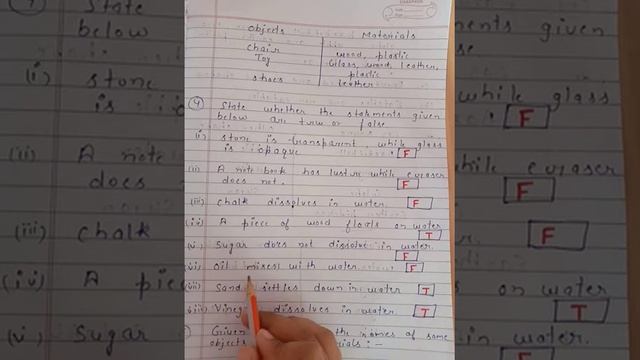 Objects Materials
Chair wood, plastic
Toy Glass, wood, leather,
plastic
shoes leather
④ State whether the statments given
below are true or false
(i) stone is transparent, while glass
is opaque F
(ii) A note book has lustre while eraser
does not. F
(iii) Chalk dissolves in water. F
(iv) A piece of wood floats on water
T
(v) Sugar does not dissolve in water.
F
(vi) Oil mixes with water. F
(vii) Sand settles down in water T
dissolves in water T
Given the names of some
objects